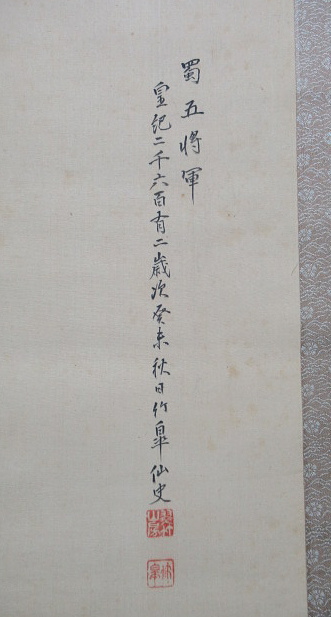 蜀五将軍
皇紀二千六百有二歳次癸未秋日竹皐仙史